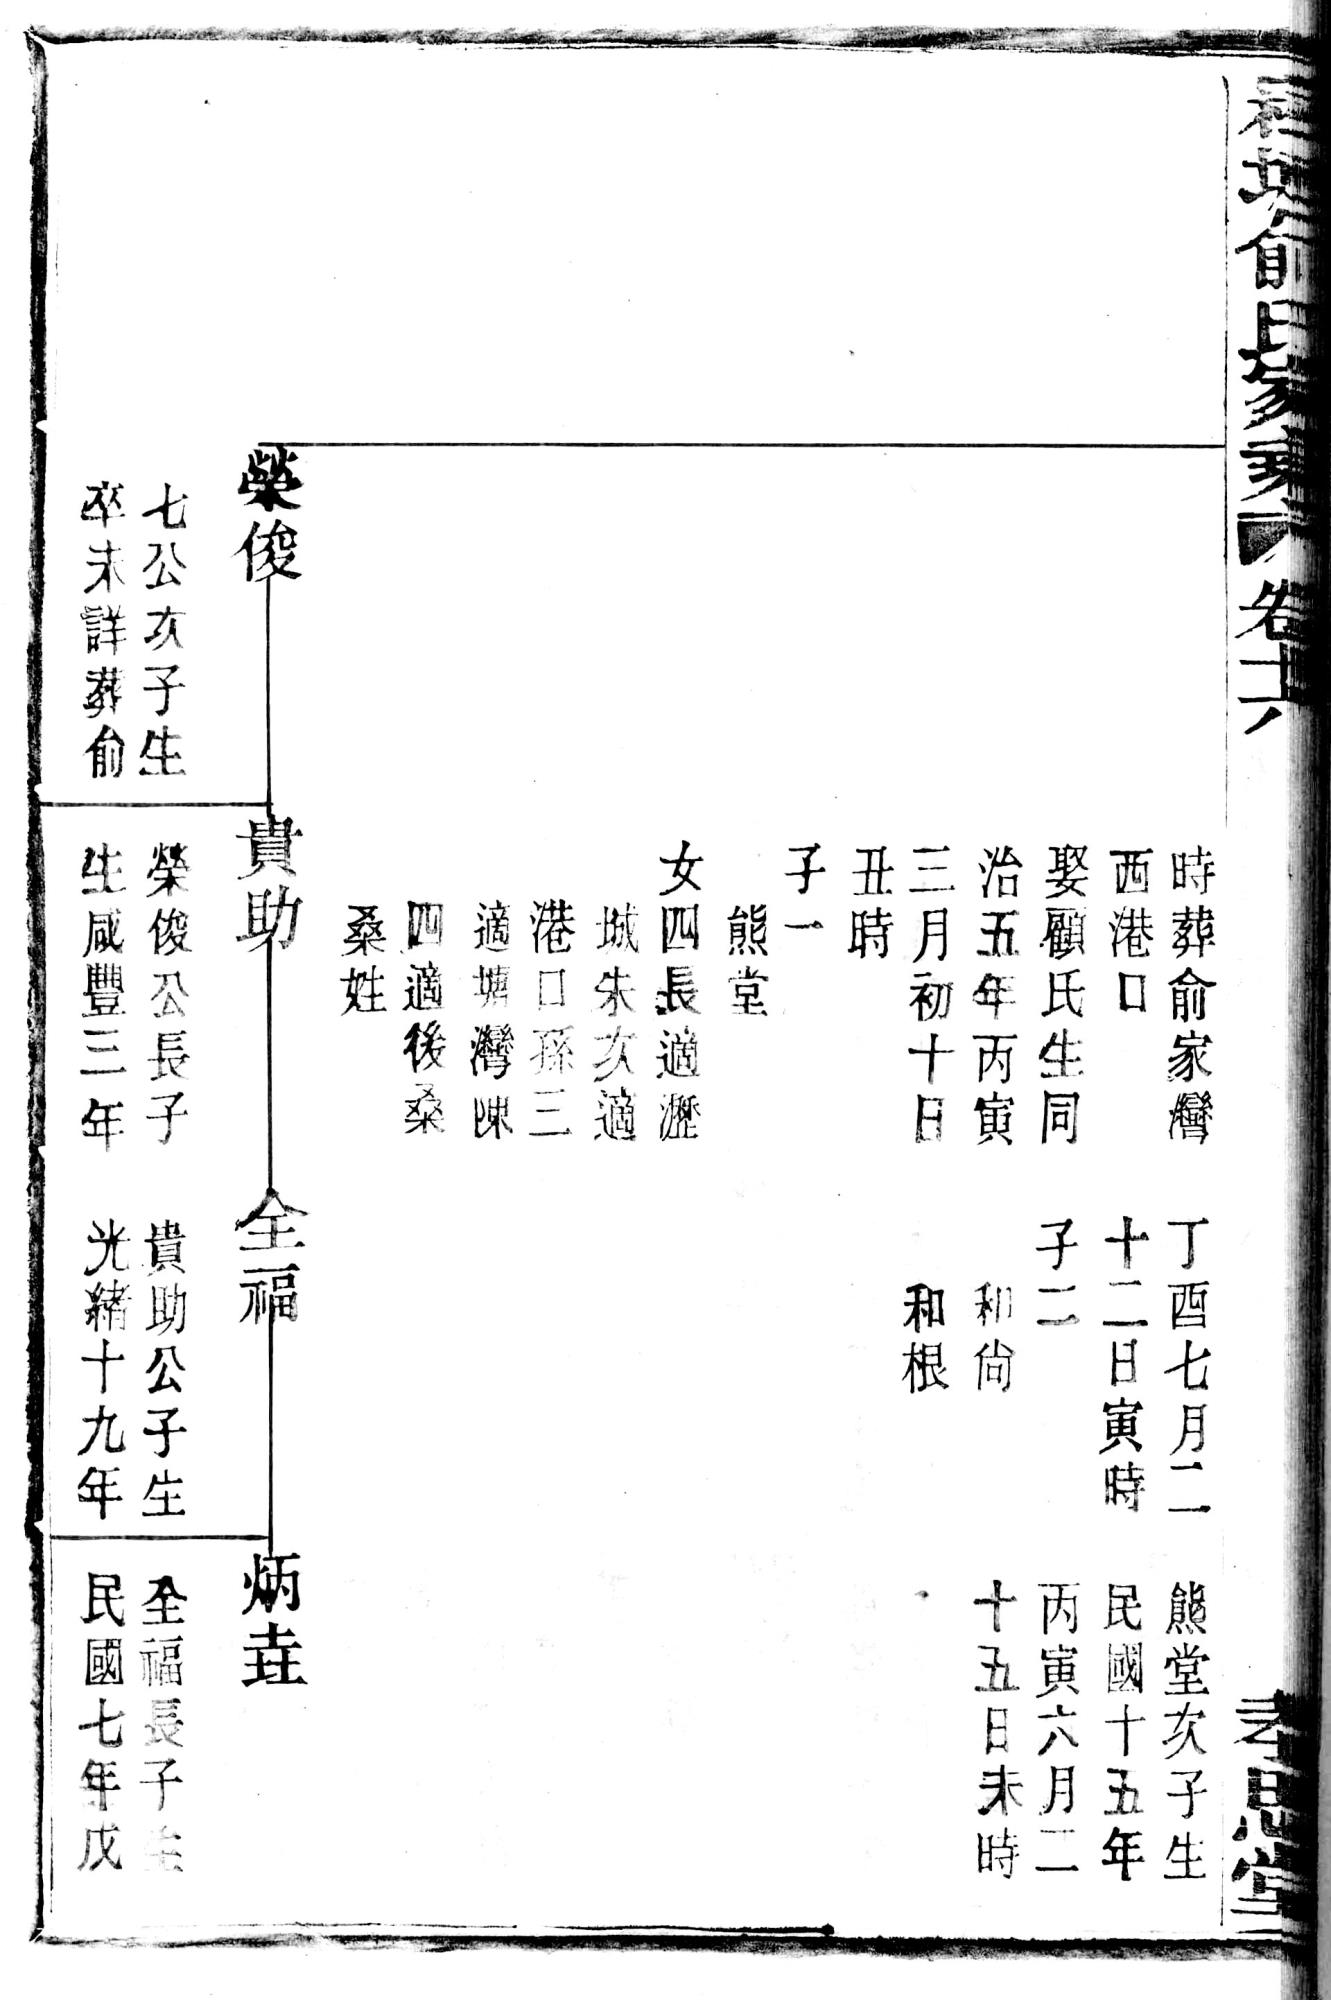 俞氏家乘
卷十六
孝思堂
時葬俞家灣
西港口
娶顧氏生同
治五年丙寅
三月初十日
丑時
子一
熊堂
女四長適瀝
城朱次適
港口孫三
適塘灣陳
四適後桑
桑姓
丁酉七月二
十二日寅時
子二
和尙
和根
熊堂次子生
民國十五年
丙寅六月二
十五日未時
榮俊
七公次子生
卒未詳葬俞
貴助
榮俊公長子
生咸豐三年
全福
貴助公子生
光緒十九年
炳垚
全福長子生
民國七年戊